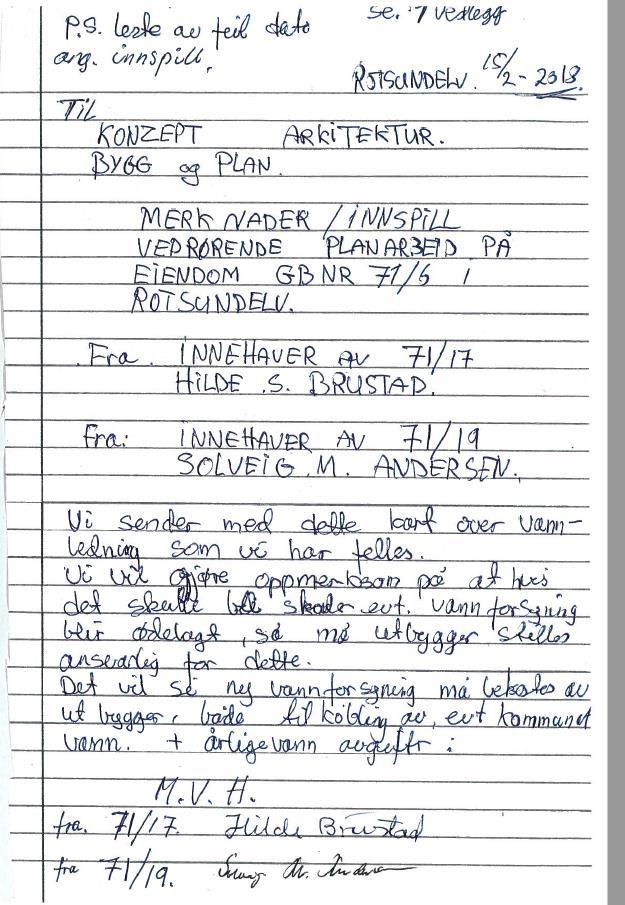 P.S. leste av feil dato
ang. innspill.
se. 7 vedlegg
ROTSUNDELV. 15/2-2018.
Til
KONZEPT ARKITEKTUR.
BYGG og PLAN.
MERKNADER / INNSPILL
VEDRØRENDE PLANARBEID PÅ
EIENDOM GBNR 71/5 I
ROTSUNDELV.
Fra. INNEHAVER AV 71/17
HILDE .S. BRUSTAD.
Fra: INNEHAVER AV 71/19
SOLVEIG M. ANDERSEN.
Vi sender med dette kart over vann-
ledning som vi har felles.
Vi vil gjøre oppmerksom på at hvis
det skulle bli skader evt. vannforsyning
blir ødelagt, så må utbygger stilles
ansvarlig for dette.
Det vil si ny vannforsyning må bekostes av
utbygger, både tilkobling av, evt kommunalt
vann. + årlige vann avgifter:
M.V.H.
fra. 71/17. Hilde Brustad
fra 71/19.